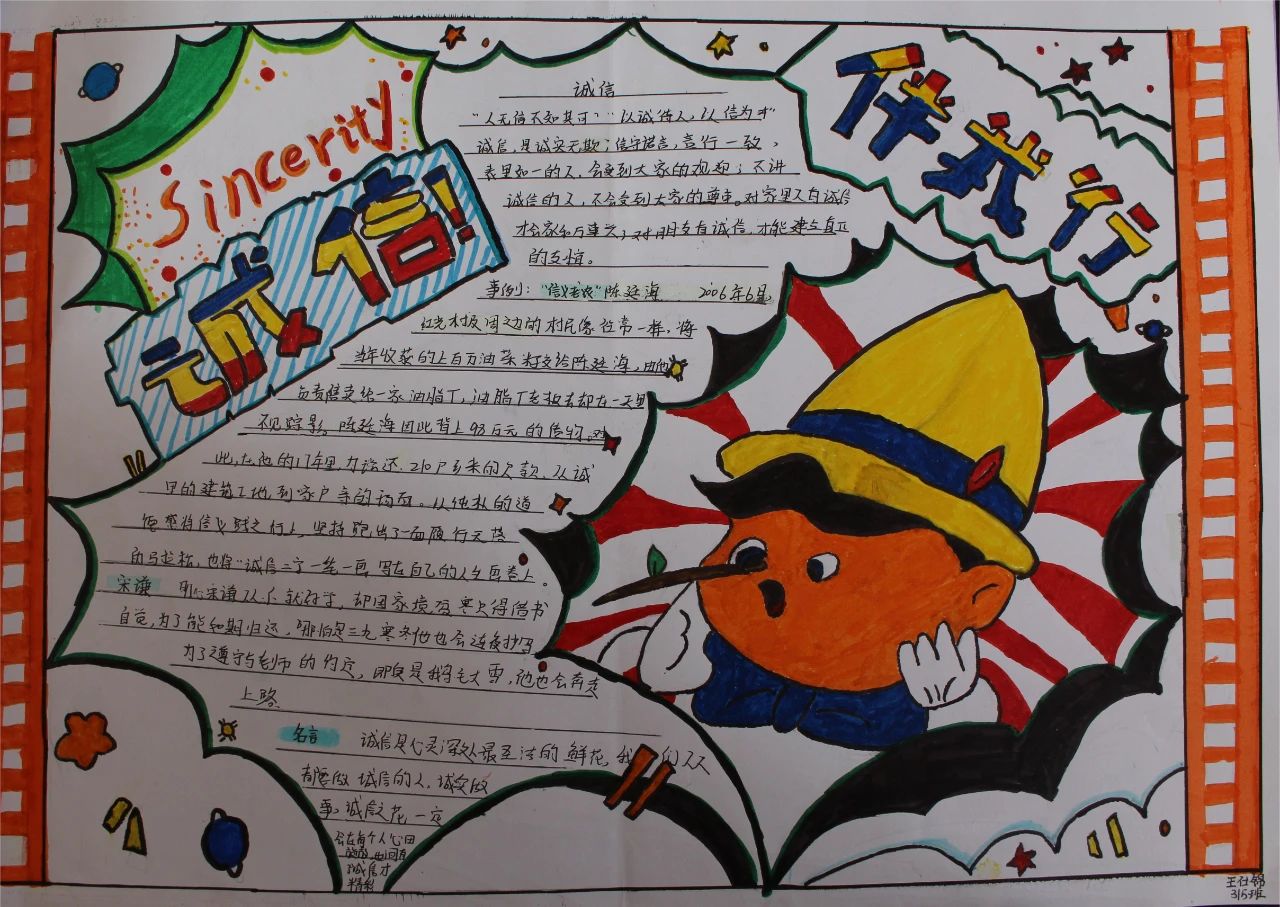 Sincerity
诚信!
伴我行
诚信
"人无信不知其可""以诚待人,以信为本"
诚信,是诚实无欺;信守诺言,言行一致,
表里如一的人,会受到大家的欢迎;不讲
诚信的人,不会受到大家的尊重。对家里人有诚信
才会家和万事兴;对朋友有诚信,才能建立真正
的友情。
事例:"信义老农"陈廷海 2006年6月,
红光村及周边的村民像往常一样,将
当年收获的上百万油菜籽交给陈廷海,由他
负责售卖给一家油脂厂,油脂厂老板去却在一天里
不见踪影,陈廷海因此背上98万元的债物。对
此,在他的17年里力偿还210户乡亲的欠款,从
的建筑工地到家户寺的场面。从纯朴的道
将信义践之行上,坚持跑出了一面履行无
马拉松,也将"诚信二字一笔一画,写在自己的人生画卷上。
宋谦 宋谦从小就好学,却因家境贫寒只得借书
自览,为了能如期归还,哪怕是三九寒冬他也会连夜抄写
为了遵守与老师的约定,即使是我鹅毛大雪,他也会奔走
上路
名言 诚信是心灵深处最圣洁的鲜花,我们人人
都要做诚信的人,诚实做
事,诚信之花一定
会在每个人心田
诚信才
精彩
王仕锦
315班